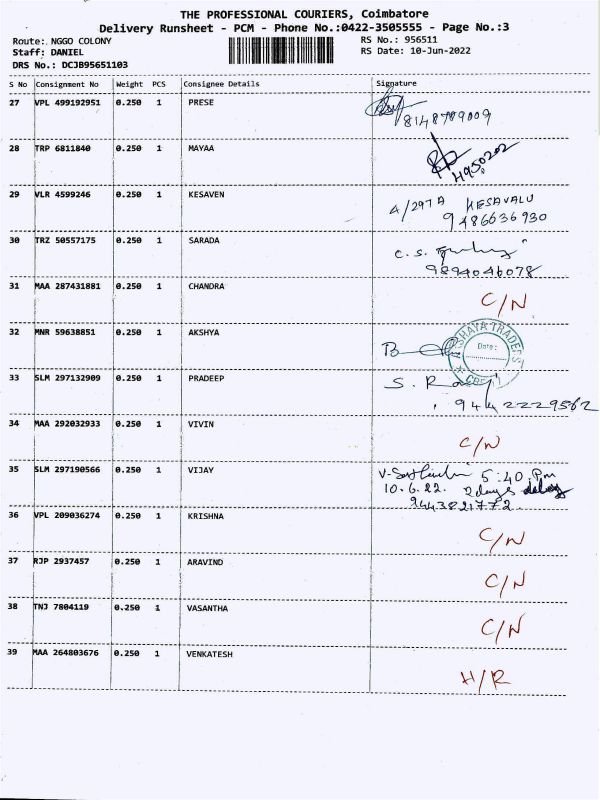 THE PROFESSIONAL COURIERS, Coimbatore
Delivery Runsheet - PCM - Phone No.:0422-3505555 - Page No.:3
Route: NGGO COLONY RS No.: 956511
Staff: DANIEL RS Date: 10-Jun-2022
DRS No.: DCJB95651103
S No Consignment No Weight PCS Consignee Details Signature
27 VPL 499192951 0.250 1 PRESE
8148709009
28 TRP 6811840 0.250 1 MAYAA
29 VLR 4599246 0.250 1 KESAVEN 4/297A KESAVALU
9486636930
30 TRZ 50557175 0.250 1 SARADA C. S.
9894046078
31 MAA 287431881 0.250 1 CHANDRA C/N
32 MNR 59638851 0.250 1 AKSHYA
AKSHAYA TRADERS
Date:
33 SLM 297132909 0.250 1 PRADEEP S.
9442229562
34 MAA 292032933 0.250 1 VIVIN C/N
35 SLM 297190566 0.250 1 VIJAY 5:40 Pm
10.6.22. 2 days delay
9443821772
36 VPL 209036274 0.250 1 KRISHNA C/N
37 RJP 2937457 0.250 1 ARAVIND C/N
38 TNJ 7804119 0.250 1 VASANTHA C/N
39 MAA 264803676 0.250 1 VENKATESH H/R